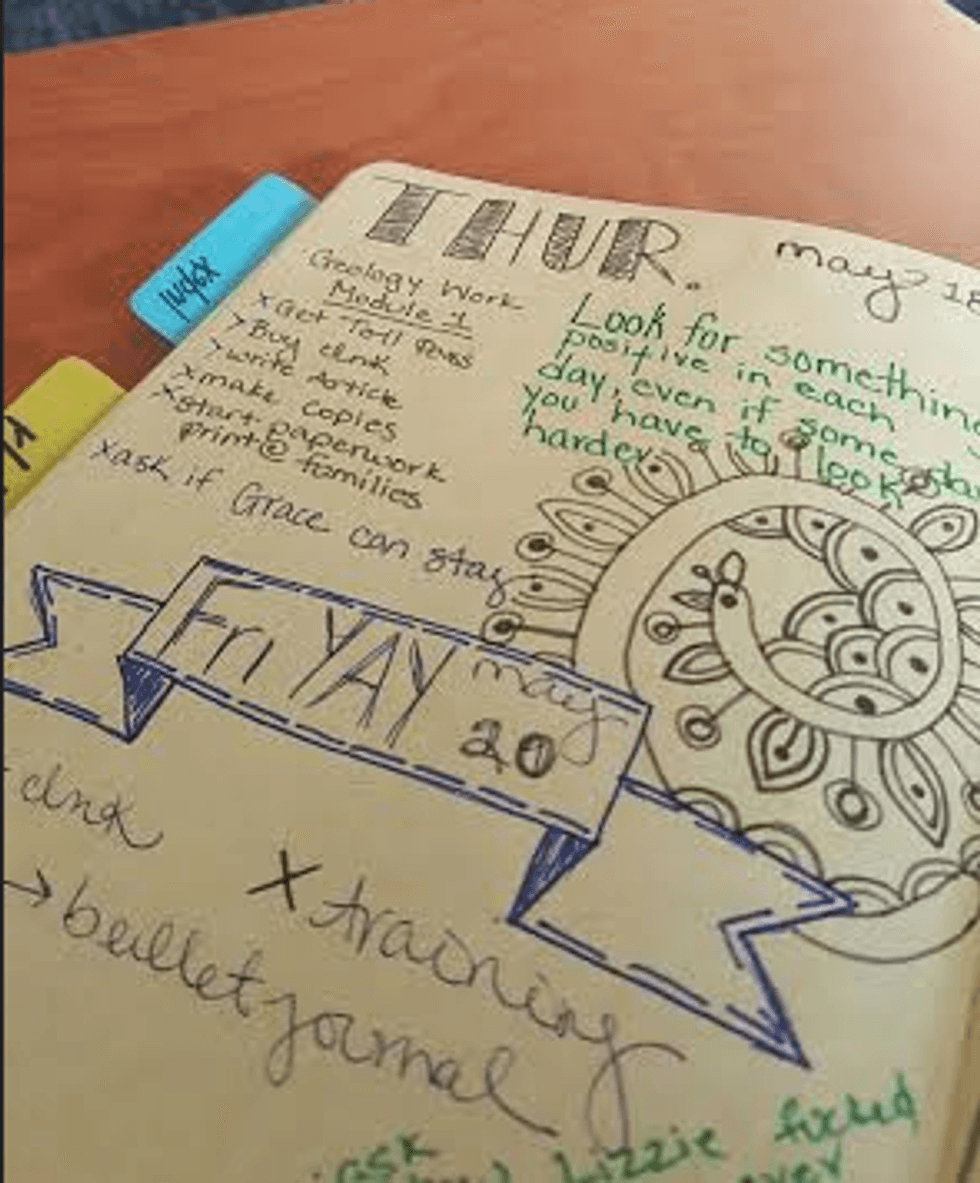 THUR.
may 18
Geology Work
Module 1
x Get Toll Pass
> Buy drink
> write Article
x make copies
x start paperwork
print @ families
x ask if Grace can stay
Look for something
positive in each
day, even if some days
you have to look
harder.
index
Fri YAY may
20
x training
→ bullet journal
ask
Lizzie
over